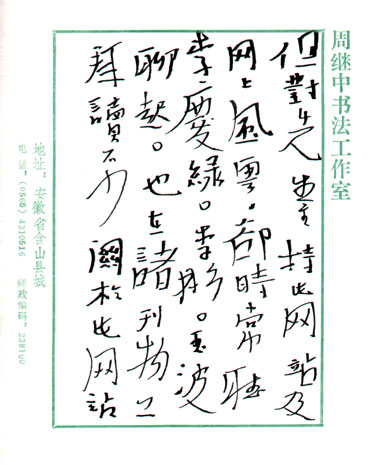 周继中书法工作室
但對先生主持此网站及
网上風雲。卻時常聽
慶綠。李 。玉波
聊起。也在諸刊物上
拜讀不少關於此网站
地址：安徽省含山县城
电话：(0565) 4310516 邮政编码：238100